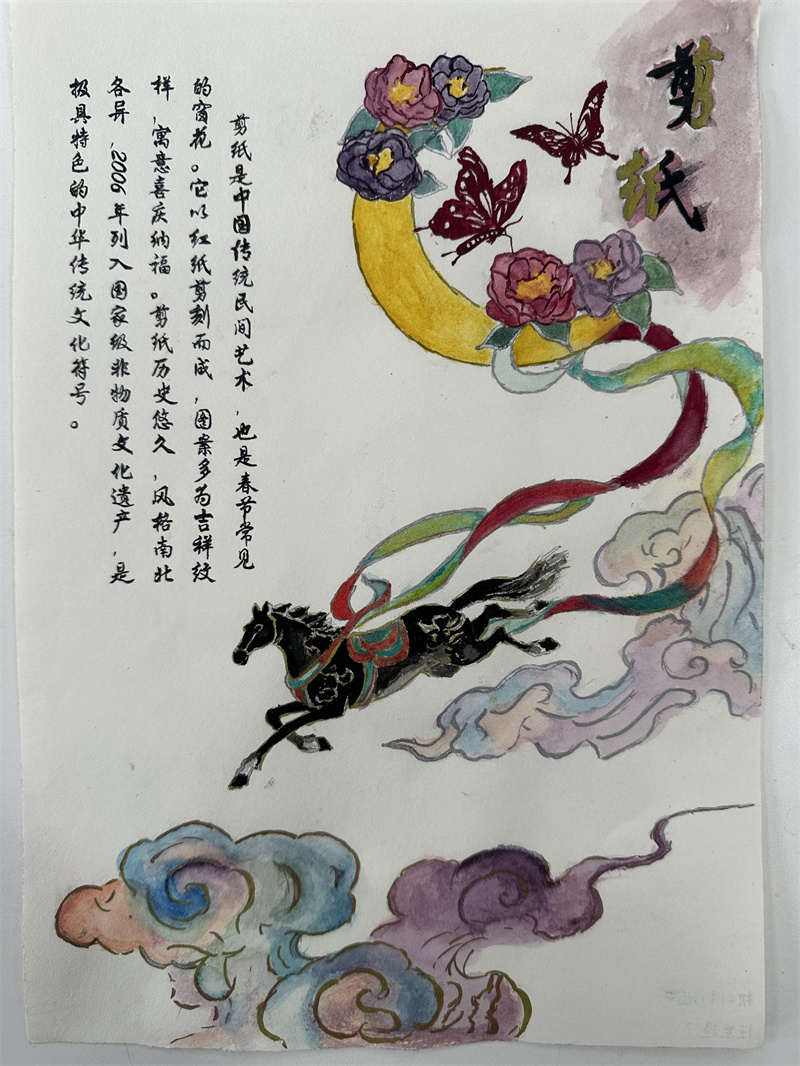 剪纸
剪纸是中国传统民间艺术，也是春节常见
的窗花。它以红纸剪刻而成，图案多为吉祥纹
样，寓意喜庆纳福。剪纸历史悠久，风格南北
各异，2006年列入国家级非物质文化遗产，是
极具特色的中华传统文化符号。